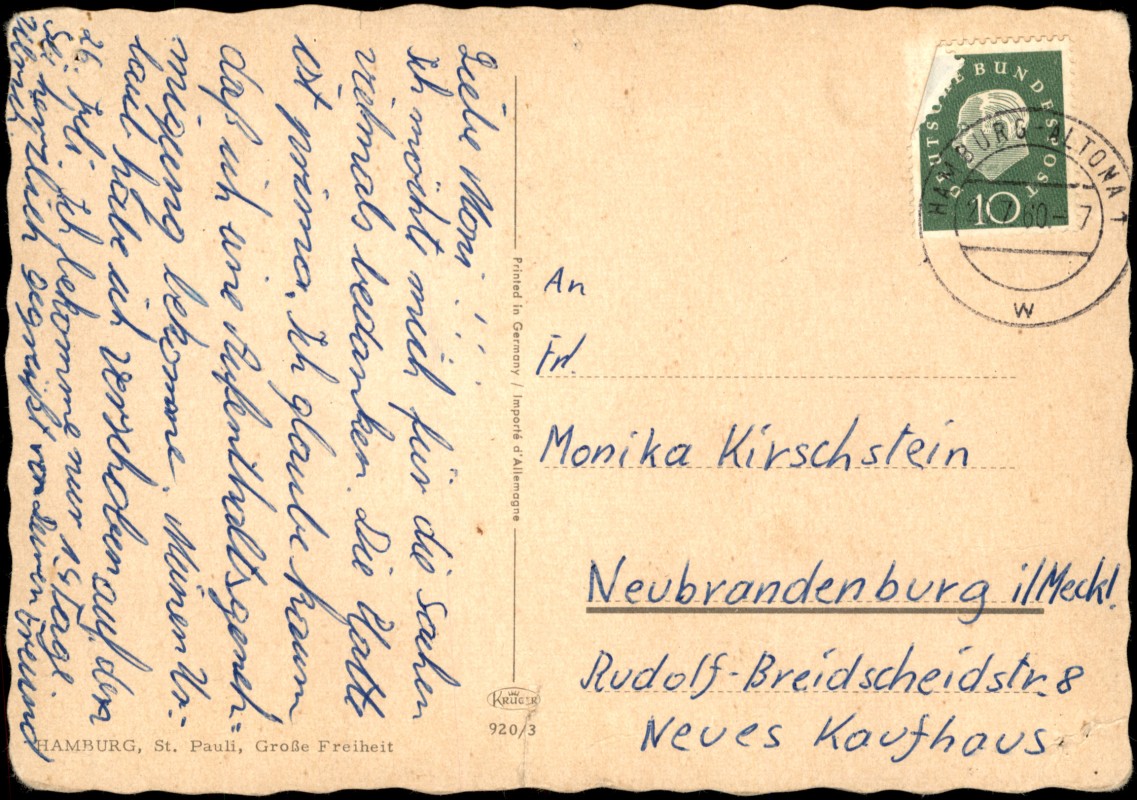 Liebe Moni!!!
Ich möcht mich für die Sachen
vielmals bedanken. Die Platte
ist prima. Ich glaube kaum
daß ich eine Aufenthaltsgeneh=
migung bekomme. Meinen Ur=
laub habe ich verschoben auf den
26. Juli. Ich bekomme nur 15 Tage
Sei herzlich gegrüßt von Deinem Freund
Ulrich
Printed in Germany / Importé d'Allemagne
KRÜGER
920/3
HAMBURG, St. Pauli, Große Freiheit
DEUTSCHE BUNDESPOST
10
HAMBURG-ALTONA 1
7.60-7
w
An
Frl.
Monika Kirschstein
Neubrandenburg i/Meckl.
Rudolf-Breidscheidstr. 8
Neues Kaufhaus